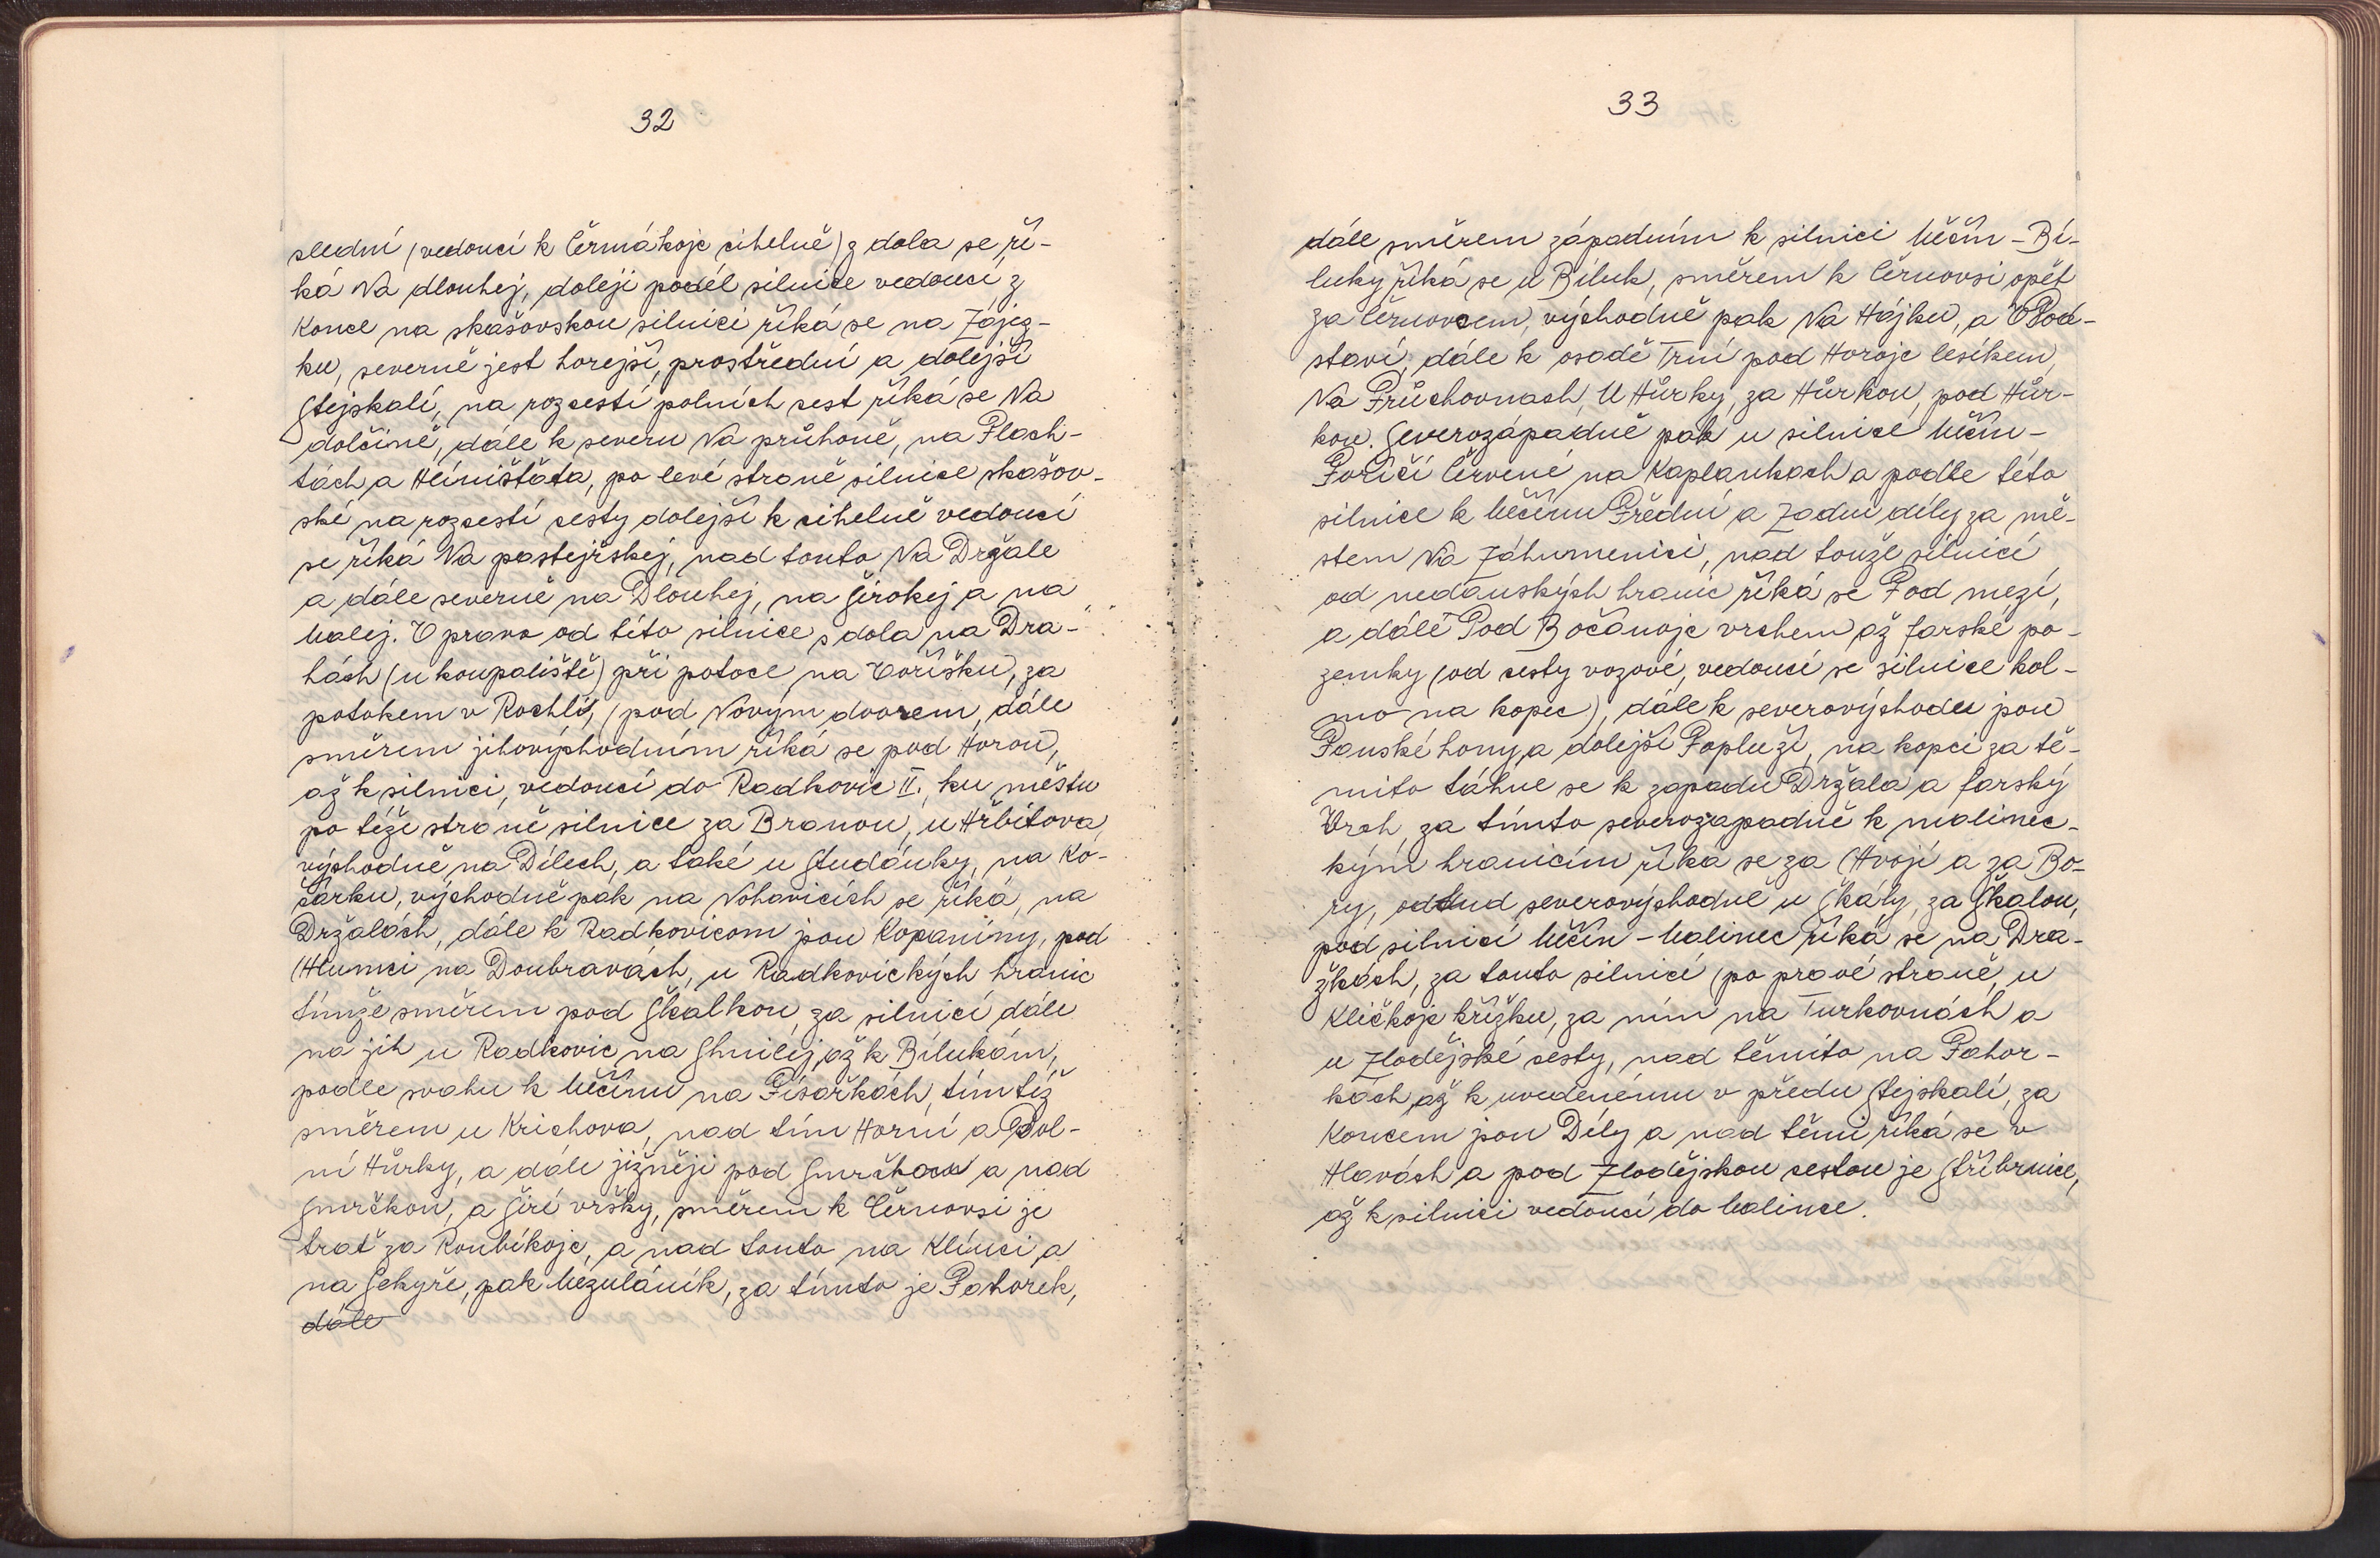 32
slední (vedoucí k Čermákojc cihelně) z dola se ří-
ká Na dlouhej, doleji podél silnice vedoucí z
Konce na skašovskou silnici říká se na Zájez-
ku, severně jest horejší, prostřední a dolejší
Stejskalí, na rozcestí polních cest říká se Na
dolčině, dále k severu Na průhoně, na Plach-
tách a Hliništáta, po levé straně silnice skašov-
ské na rozcestí cesty dolejší k cihelně vedoucí
se říká Na pastejřskej, nad touto Na Držale
a dále severně na Dlouhej, na Širokej a na
Malej. V pravo od této silnice s dola na Dra-
hách (u koupaliště) při potoce na Voříšku, za
potokem v Rochli, (pod Novým dvorem, dále
směrem jihovýchodním říká se pod Horou,
až k silnici, vedoucí do Radkovic II., ku městu
po téže straně silnice za Branou, u Hřbitova,
východně na Dílech, a také u Studánky, na Ko-
čárku, východně pak na Nohavicích se říká, na
Držalách, dále k Radkovicom jsou Kopaniny, pod
Hlumci na Doubravách, u Radkovických hranic
tímže směrem pod Skalkou, za silnicí dále
na jih u Radkovic na Shnilej, až k Bílukám,
podle svahu k Měčínu na Písařkách, tím též
směrem u Krichova, nad tím Horní a Dol-
ní Hůrky, a dále jižněji pod Smrčkou a nad
Smrčkou, a Širé vršky, směrem k Černovsi je
trať za Roubíkojc, a nad touto na Klínci a
na Sekyře, pak Mezuláník, za tímto je Pahorek,
dále
33
dále směrem západním k silnici Měčín - Bí-
luky říká se u Bíluk, směrem k Černovsi opět
za Černovcem, východně pak Na Hájku, a V Pod-
staví, dále k osadě Trní pod Horojc lesíkem,
Na Průchovnach, U Hůrky, za Hůrkou, pod Hůr-
kou. Severozápadně pak u silnice Měčín -
Poříčí Červené na Kaplankach a podle této
silnice k Měčínu Přední a Zadní díly za mě-
stem Na Záhumenici, nad touže silnicí
od nedanských hranic říká se Pod mezí,
a dále Pod Bočanojc vrchem až farské po-
zemky (od cesty vozové, vedoucí se silnice kol-
mo na kopec), dále k severovýchodu jsou
Panské hony, a dolejší Popluží, na kopci za tě-
mito táhne se k zapadu Držala a farský
Vrch, za tímto severozapadně k malinec-
kým hranicím říká se za Hvojí a za Bo-
ry, odtud severovýchodně u Skály, za Skalou,
pod silnicí Měčín - Malinec říká se na Dra-
žkách, za touto silnicí (po pravé straně, u
Kličkojc křížku, za ním na Turkovnách a
u Zlodějské cesty, nad těmito na Pahor-
kách až k uvedenému v předu Stejskalí, za
Koncem jsou Díly a nad těmi říká se v
Hlavách a pod Zlodějskou cestou je Stříbrnice,
až k silnici vedoucí do Malince.